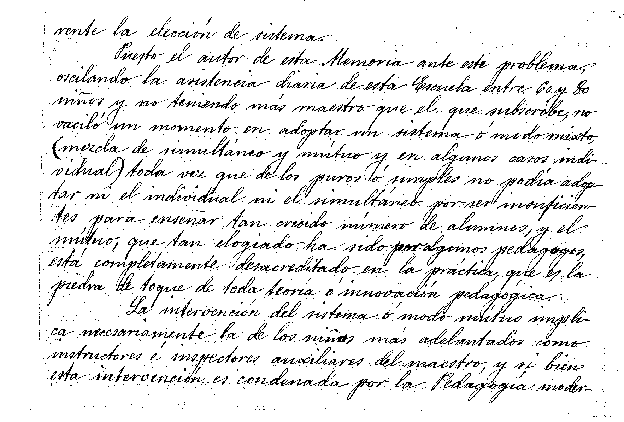 rente la elección de sistema.
Puesto el autor de esta Memoria ante este problema,
oscilando la asistencia diaria de esta Escuela entre 60 y 80
niños y no teniendo más maestro que el que subscribe, no
vaciló un momento en adoptar un sistema o modo mixto
(mezcla de simultáneo y mútuo y en algunos casos indi-
vidual) toda vez que de los puros ó simples no podia adop-
tar ni el individual ni el simultáneo por ser insuficien-
tes para enseñar tan crecido número de alumnos, y el
mútuo, que tan elogiado ha sido por algunos pedagogos,
está completamente desacreditado en la práctica, que es la
piedra de toque de toda teoria ó innovación pedagógica.
La intervención del sistema ó modo mútuo impli-
ca necesariamente la de los niños más adelantados como
instructores e inspectores auxiliares del maestro, y si bien
esta intervención es condenada por la Pedagogía moder-